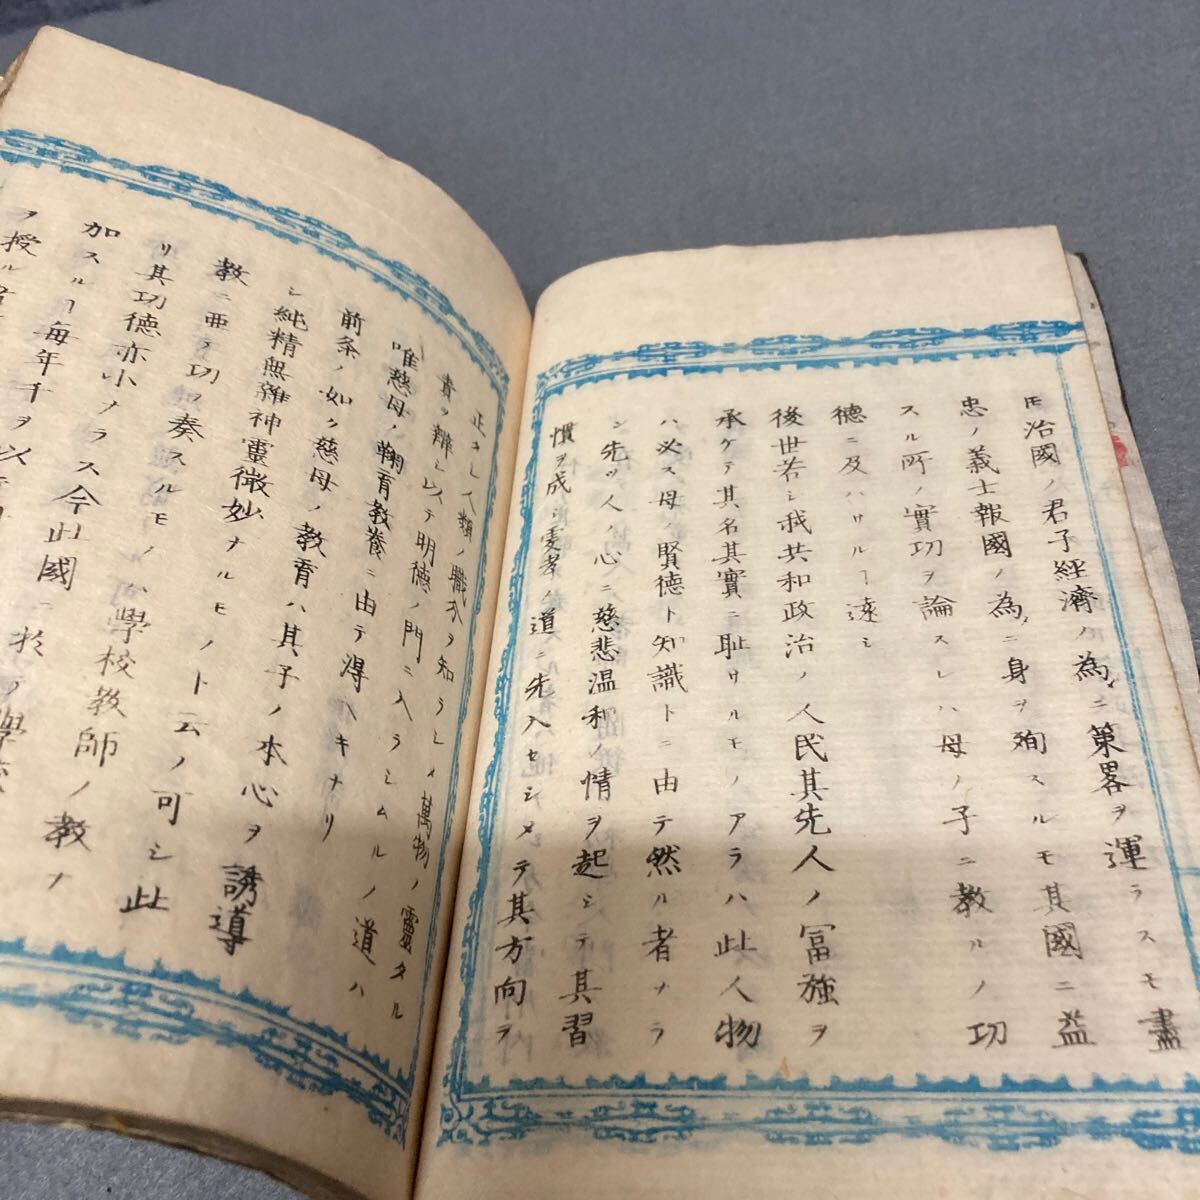 ㇳモ治國ノ君子經濟ノ為ニ策畧ヲ運ラスモ盡
忠ノ義士報國ノ為ニ身ヲ殉スルモ其國ニ益
スル所ノ實功ヲ論スレハ母ノ子ニ教ルノ功
德ニ及ハサルヿ遠シ
後世若シ我共和政治ノ人民其先人ノ冨強ヲ
承ケテ其名其實ニ耻サルモノアラハ此人物
ハ必ス母ノ賢德ト知識トニ由テ然ル者ナラ
ン先ツ人ノ心ニ慈悲温和ノ情ヲ起シテ其習
慣ヲ成シ愛孝ノ道ニ先入セシメテ其方向ヲ
正クシ人類ノ職分ヲ知ラシメ萬物ノ靈タル
責ヲ辨シ以テ明德ノ門ニ入ラシムルノ道ハ
唯慈母ノ鞠育教養ニ由テ得ヘキナリ
前条ノ如ク慈母ノ教育ハ其子ノ本心ヲ誘導
シ純精無雜神靈微妙ナルモノト云ノ可シ此
教ニ亜テ功ヲ奏スルモノハ學校教師ノ教ナ
リ其功徳亦小ナラス今此國ニ於テ學
加スルヿ毎年千ヲ以
ヲ授ル